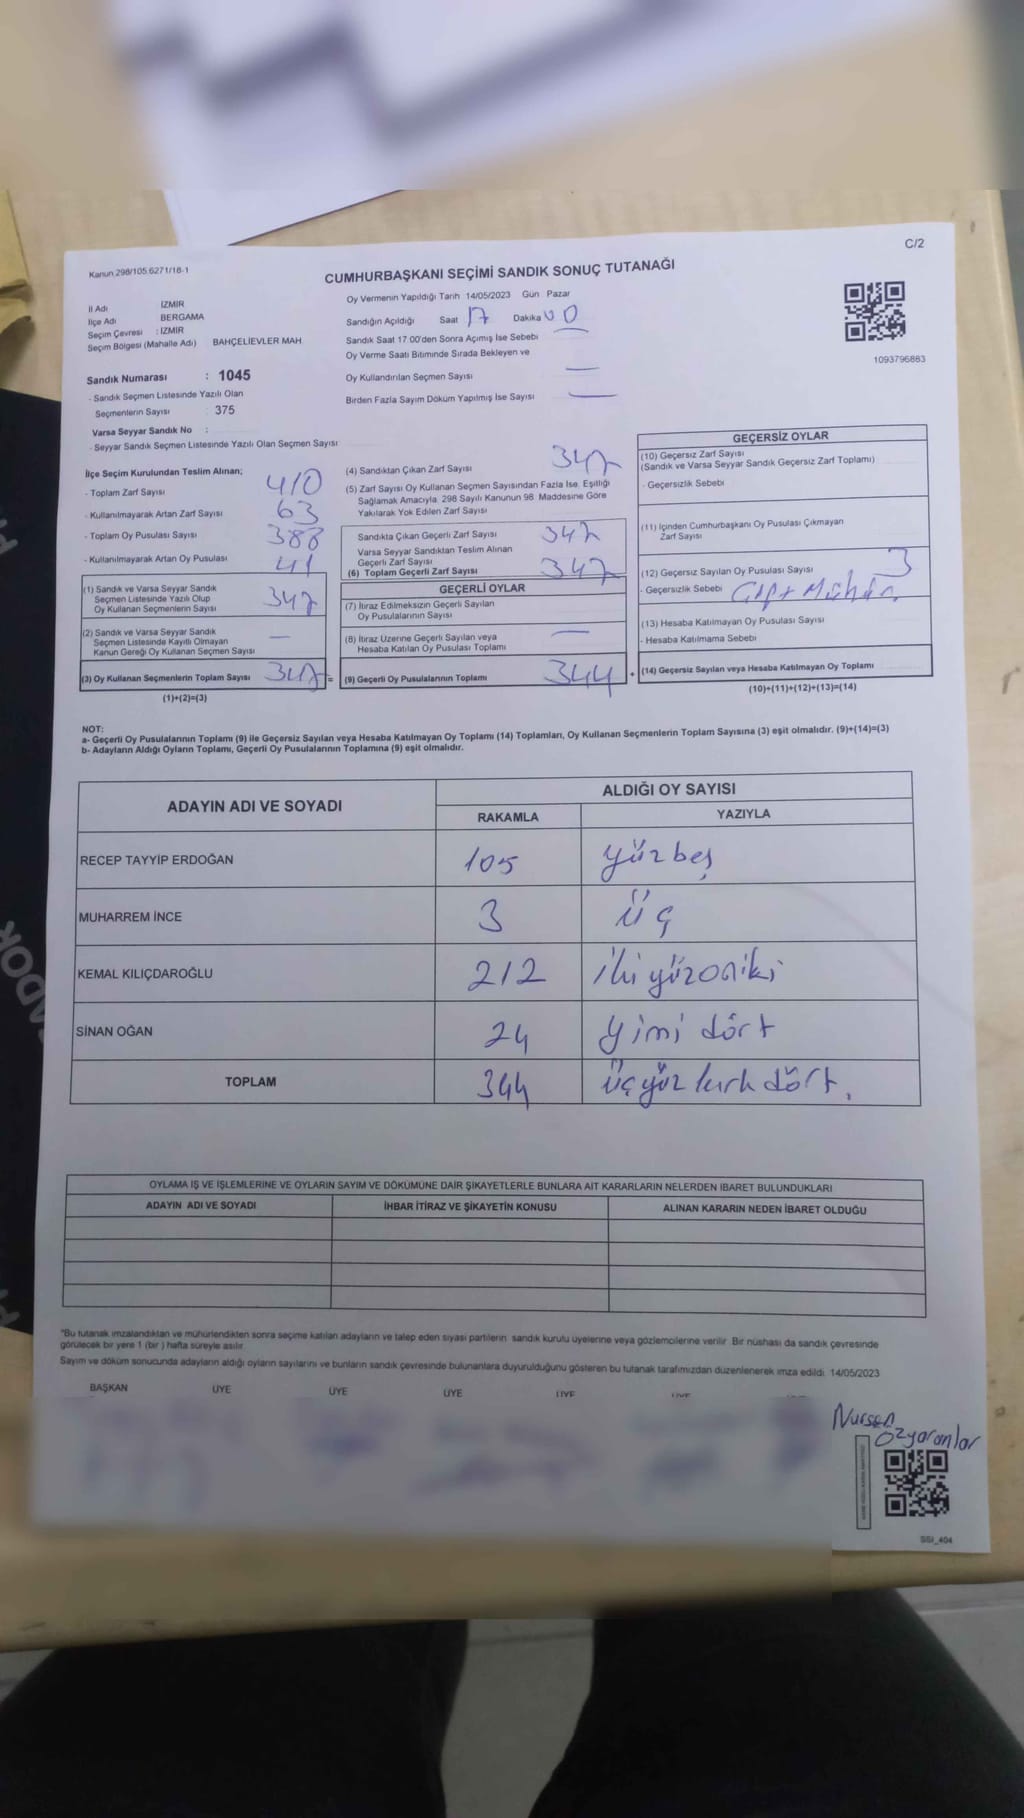 C/2
Kanun 298/105 6271/18-1
CUMHURBAŞKANI SEÇİMİ SANDIK SONUÇ TUTANAĞI
İl Adı İZMİR
İlçe Adı BERGAMA
Seçim Çevresi : İZMİR
Seçim Bölgesi (Mahalle Adı) BAHÇELİEVLER MAH.
Sandık Numarası : 1045
- Sandık Seçmen Listesinde Yazılı Olan
Seçmenlerin Sayısı : 375
Varsa Seyyar Sandık No :
- Seyyar Sandık Seçmen Listesinde Yazılı Olan Seçmen Sayısı
Oy Vermenin Yapıldığı Tarih 14/05/2023 Gün Pazar
Sandığın Açıldığı Saat 17 Dakika 00
Sandık Saat 17.00'den Sonra Açılmış İse Sebebi —
Oy Verme Saati Bitiminde Sırada Bekleyen ve
Oy Kullandırılan Seçmen Sayısı —
Birden Fazla Sayım Döküm Yapılmış İse Sayısı —
1093796863
İlçe Seçim Kurulundan Teslim Alınan;
- Toplam Zarf Sayısı 410
- Kullanılmayarak Artan Zarf Sayısı 63
- Toplam Oy Pusulası Sayısı 388
- Kullanılmayarak Artan Oy Pusulası 41
(1) Sandık ve Varsa Seyyar Sandık
Seçmen Listesinde Yazılı Olup
Oy Kullanan Seçmenlerin Sayısı 347
(2) Sandık ve Varsa Seyyar Sandık
Seçmen Listesinde Kayıtlı Olmayan
Kanun Gereği Oy Kullanan Seçmen Sayısı —
(3) Oy Kullanan Seçmenlerin Toplam Sayısı 347 =
(1)+(2)=(3)
(4) Sandıktan Çıkan Zarf Sayısı 347
(5) Zarf Sayısı Oy Kullanan Seçmen Sayısından Fazla İse, Eşitliği
Sağlamak Amacıyla, 298 Sayılı Kanunun 98. Maddesine Göre
Yakılarak Yok Edilen Zarf Sayısı
Sandıkta Çıkan Geçerli Zarf Sayısı 347
Varsa Seyyar Sandıktan Teslim Alınan
Geçerli Zarf Sayısı
(6) Toplam Geçerli Zarf Sayısı 347
GEÇERLİ OYLAR
(7) İtiraz Edilmeksizin Geçerli Sayılan
Oy Pusulalarının Sayısı
(8) İtiraz Üzerine Geçerli Sayılan veya
Hesaba Katılan Oy Pusulası Toplamı —
(9) Geçerli Oy Pusulalarının Toplamı 344 +
GEÇERSİZ OYLAR
(10) Geçersiz Zarf Sayısı
(Sandık ve Varsa Seyyar Sandık Geçersiz Zarf Toplamı)
- Geçersizlik Sebebi
(11) İçinden Cumhurbaşkanı Oy Pusulası Çıkmayan
Zarf Sayısı
(12) Geçersiz Sayılan Oy Pusulası Sayısı 3
- Geçersizlik Sebebi Çift Mühür.
(13) Hesaba Katılmayan Oy Pusulası Sayısı
- Hesaba Katılmama Sebebi
(14) Geçersiz Sayılan veya Hesaba Katılmayan Oy Toplamı
(10)+(11)+(12)+(13)=(14)
NOT:
a- Geçerli Oy Pusulalarının Toplamı (9) ile Geçersiz Sayılan veya Hesaba Katılmayan Oy Toplamı (14) Toplamları, Oy Kullanan Seçmenlerin Toplam Sayısına (3) eşit olmalıdır. (9)+(14)=(3)
b- Adayların Aldığı Oyların Toplamı, Geçerli Oy Pusulalarının Toplamına (9) eşit olmalıdır.
ADAYIN ADI VE SOYADI ALDIĞI OY SAYISI
RAKAMLA YAZIYLA
RECEP TAYYİP ERDOĞAN 105 yüzbeş
MUHARREM İNCE 3 üç
KEMAL KILIÇDAROĞLU 212 ikiyüzoniki
SİNAN OĞAN 24 yimi dört
TOPLAM 344 üçyüz kırk dört.
OYLAMA İŞ VE İŞLEMLERİNE VE OYLARIN SAYIM VE DÖKÜMÜNE DAİR ŞİKAYETLERLE BUNLARA AİT KARARLARIN NELERDEN İBARET BULUNDUKLARI
ADAYIN ADI VE SOYADI İHBAR İTİRAZ VE ŞİKAYETİN KONUSU ALINAN KARARIN NEDEN İBARET OLDUĞU
*Bu tutanak imzalandıktan ve mühürlendikten sonra seçime katılan adayların ve talep eden siyasi partilerin sandık kurulu üyelerine veya gözlemcilerine verilir. Bir nüshası da sandık çevresinde
görülecek bir yere 1 (bir ) hafta süreyle asılır.
Sayım ve döküm sonucunda adayların aldığı oyların sayılarını ve bunların sandık çevresinde bulunanlara duyurulduğunu gösteren bu tutanak tarafımızdan düzenlenerek imza edildi. 14/05/2023
BAŞKAN ÜYE ÜYE ÜYE ÜYE ÜYE
Nursen
Özyaranlar
SSI_404